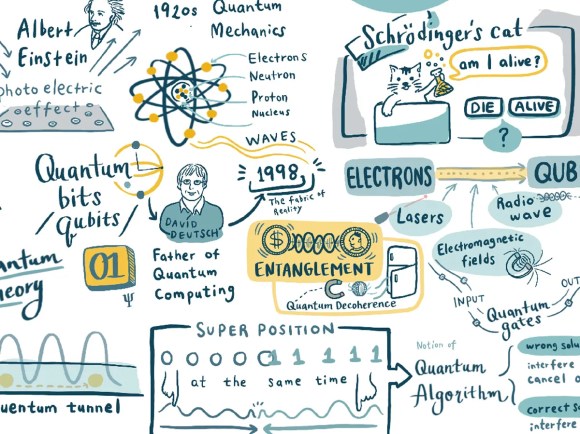 Albert
Einstein
photo electric
effect
1920s
Quantum
Mechanics
Electrons
Neutron
Proton
Nucleus
WAVES
Schrödinger's cat
am I alive?
DIE
ALIVE
?
Quantum
bits
qubits
DAVID
DEUTSCH
1998
The Fabric of
Reality
Father of
Quantum
Computing
01
Ψ
ELECTRONS
QUB
Lasers
Radio
wave
Electromagnetic
fields
INPUT
OUT
Quantum
gates
$
ENTANGLEMENT
Quantum Decoherence
antum
heory
uentum tunnel
SUPER POSITION
0 0 0 0 0 1 1 1 1 1
at the same time
Notion of
Quantum
Algorithm
wrong solu
interfere
cancel o
correct so
interfere